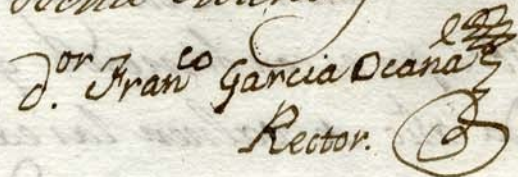 D.or Fran.co Garcia Ocaña
Rector.